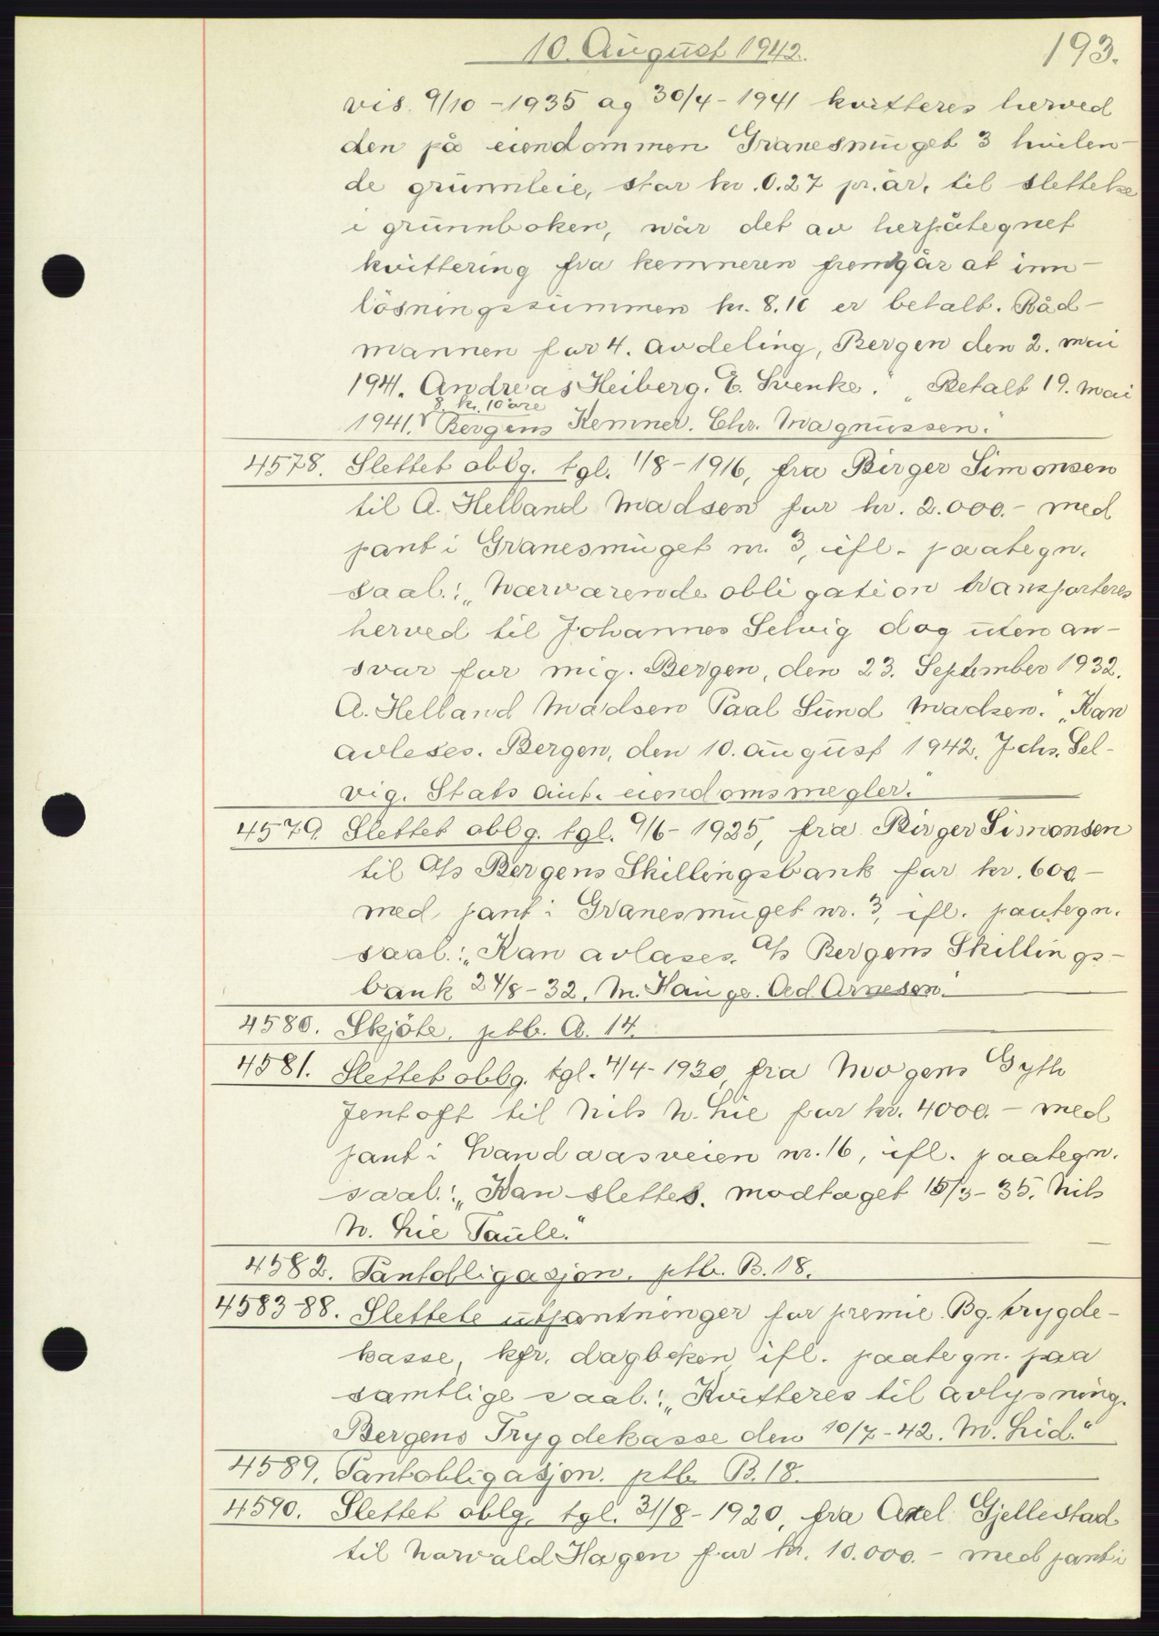 10. August 1942. 193.
vis 9/10 - 1935 og 30/4 - 1941 kvitteres herved
den på eiendommen Granesmuget 3 hvilen-
de grunnleie, stor kr. 0.27 pr. år, til slettelse
i grunnboken, når det av herpåtegnet
kvittering fra kemneren fremgår at inn-
løsningssummen kr. 8.10 er betalt. Råd-
mannen for 4. avdeling, Bergen den 2. mai
1941. Andreas Heiberg. E. Svenke." "Betalt 19. mai
8 kr. 10 øre
1941. Bergens Kemner. Chr. Magnussen."
4578. Slettet oblg. tgl. 1/8 - 1916, fra Birger Simonsen
til A. Helland Madsen for kr. 2.000.- med
pant i Granesmuget nr. 3, ifl. paategn.
saal.: "Nærværende obligation transporteres
herved til Johannes Selvig dog uten an-
svar for mig. Bergen, den 23. September 1932.
A. Helland Madsen Paal Sund Madsen." "Kan
avleses. Bergen, den 10. august 1942. Johs. Sel-
vig. Stats aut. eiendomsmegler."
4579. Slettet oblg. tgl. 9/6 - 1925, fra Birger Simonsen
til A/s Bergens Skillingsbank for kr. 600.-
med pant i Granesmuget nr. 3, ifl. paategn.
saal.: "Kan avlases. A/s Bergens Skillings-
bank 24/8 - 32. M. Hauge. Ad Arnesen."
4580. Skjøte, ptb. A. 14.
4581. Slettet oblg. tgl. 4/4 - 1930, fra Mogens Gyth
Jentoft til Nils N. Lie for kr. 4000.- med
pant i Landaasveien nr. 16, ifl. paategn.
saal.: "Kan slettes. modtaget 15/3 - 35. Nils
N. Lie Taule."
4582. Pantobligasjon, ptb. B. 18.
4583-88. Slettete utpantninger for premie Bg. trygde-
kasse, kfr. dagboken ifl. paategn. paa
samtlige saal.: "Kvitteres til avlysning.
Bergens Trygdekasse den 10/7 - 42. M. Lid."
4589. Pantobligasjon. ptb. B. 18.
4590. Slettet oblg. tgl. 31/8 - 1920, fra Axel Gjellestad
til Norvald Hagen for kr. 10.000.- med pant i